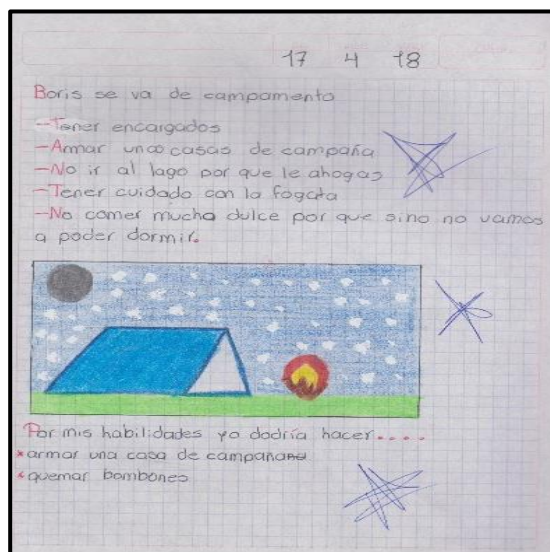 17 4 18
Boris se va de campamento
-Tener encargados
-Armar unas casas de campaña
-No ir al lago por que le ahogas
-Tener cuidado con la fogata
-No comer mucha dulce por que sino no vamos
a poder dormir.
Por mis habilidades yo dodría hacer....
*armar una casa de campaña
*quemar bombones